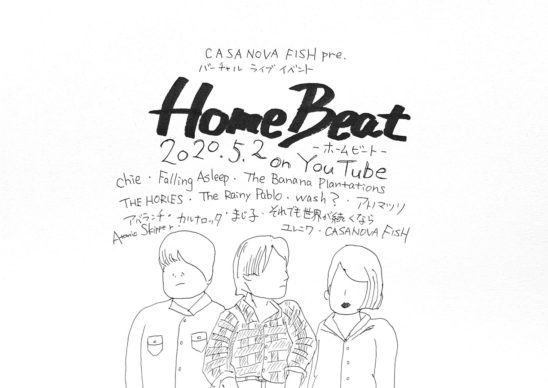 CASANOVA FISH pre.
バーチャル ライブ イベント
Home Beat
-ホームビート-
2020.5.2 on YouTube
chie・Falling Asleep・The Banana Plantations
THE HORIES・The Rainy Pablo・wash?・アトノマツリ
アバランチ・カルナロッタ・まじ子・それでも世界が続くなら
Atomic Skipper・ユレニワ・CASANOVA FISH